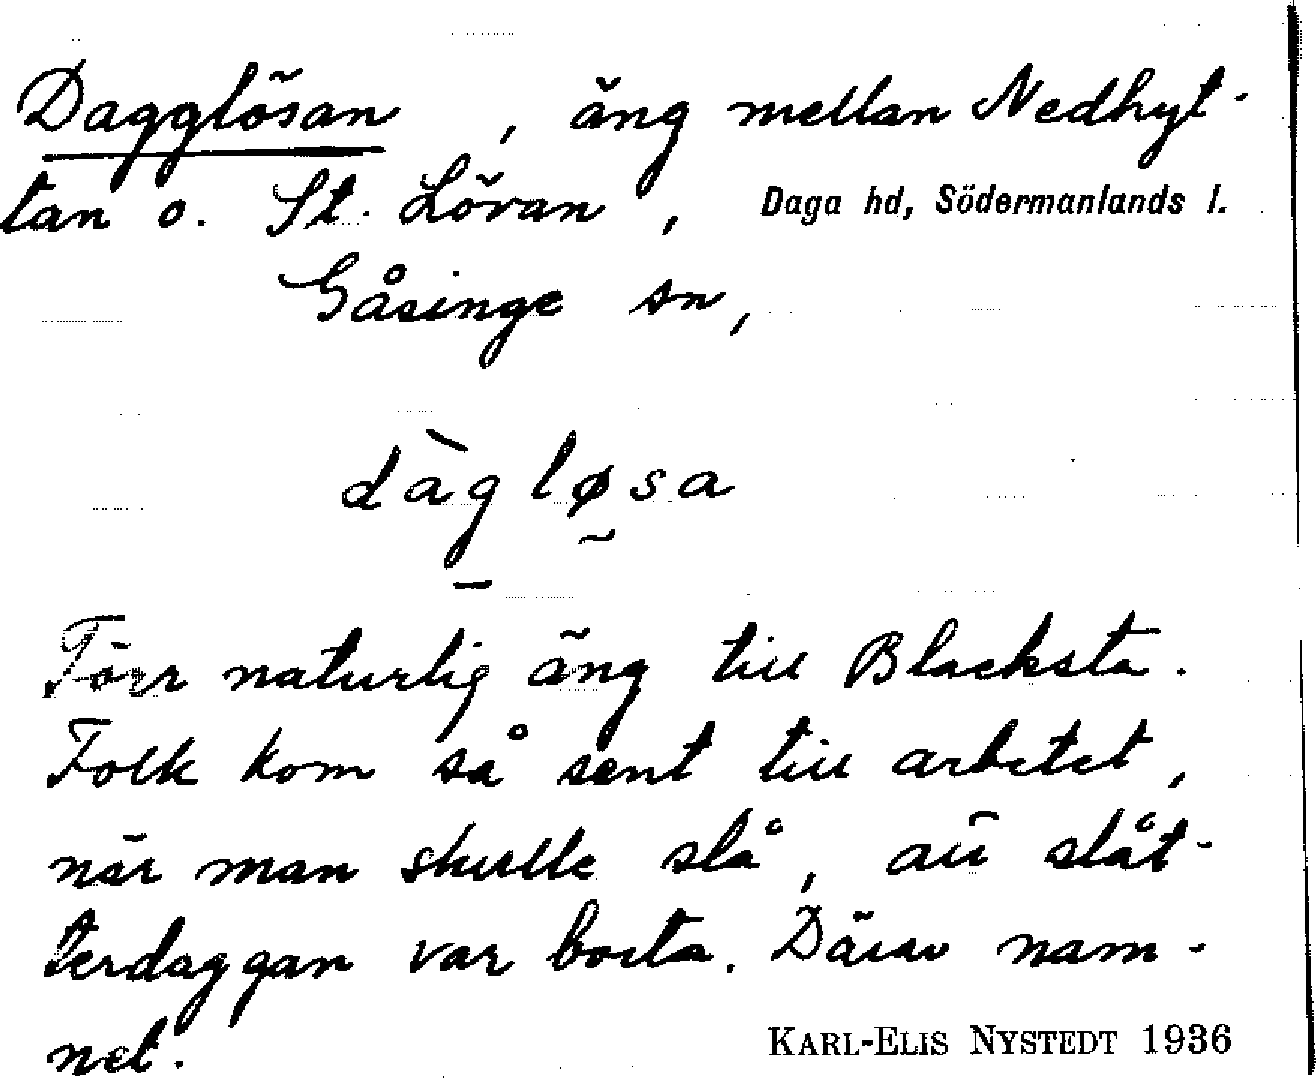 Dagglösan, äng mellan Nedhyt-
tan o. St. Lövan, Daga hd, Södermanlands l.
Gåsinge sn,
dàgløsa
Förr naturlig äng till Blacksta.
Folk kom så sent till arbetet,
när man skulle slå, att slåt-
terdaggan var borta. Därav nam-
net.
KARL-ELIS NYSTEDT 1936